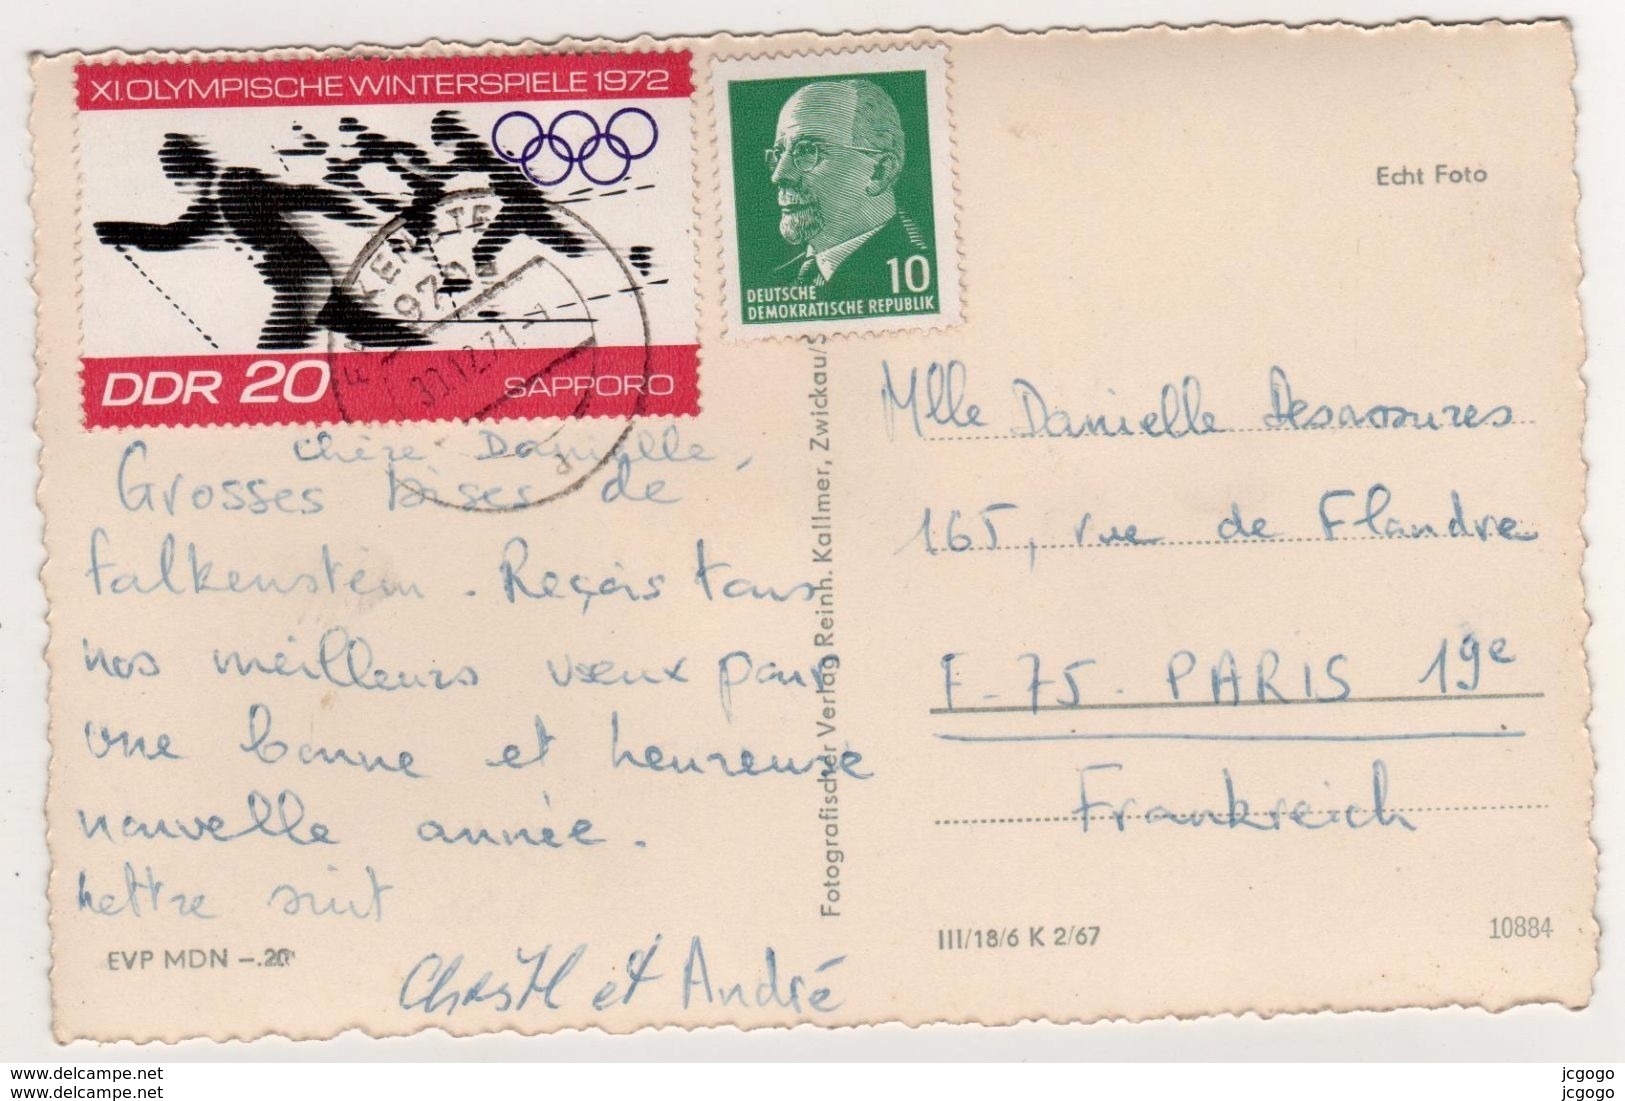 XI. OLYMPISCHE WINTERSPIELE 1972
DDR 20
SAPPORO
10
DEUTSCHE
DEMOKRATISCHE REPUBLIK
30.12.71-7
Echt Foto
chère Danielle,
Grosses bises de
Falkenstein. Reçois tous
nos meilleurs vœux pour
une bonne et heureuse
nouvelle année.
lettre suit
et André
EVP MDN -.20
Fotografischer Verlag Reinh. Kallmer, Zwickau/S
Mlle Danielle
165, rue de Flandre
F-75-PARIS 19e
Frankreich
III/18/6 K 2/67
10884
www.delcampe.net
www.delcampe.net
jcgogo
jcgogo